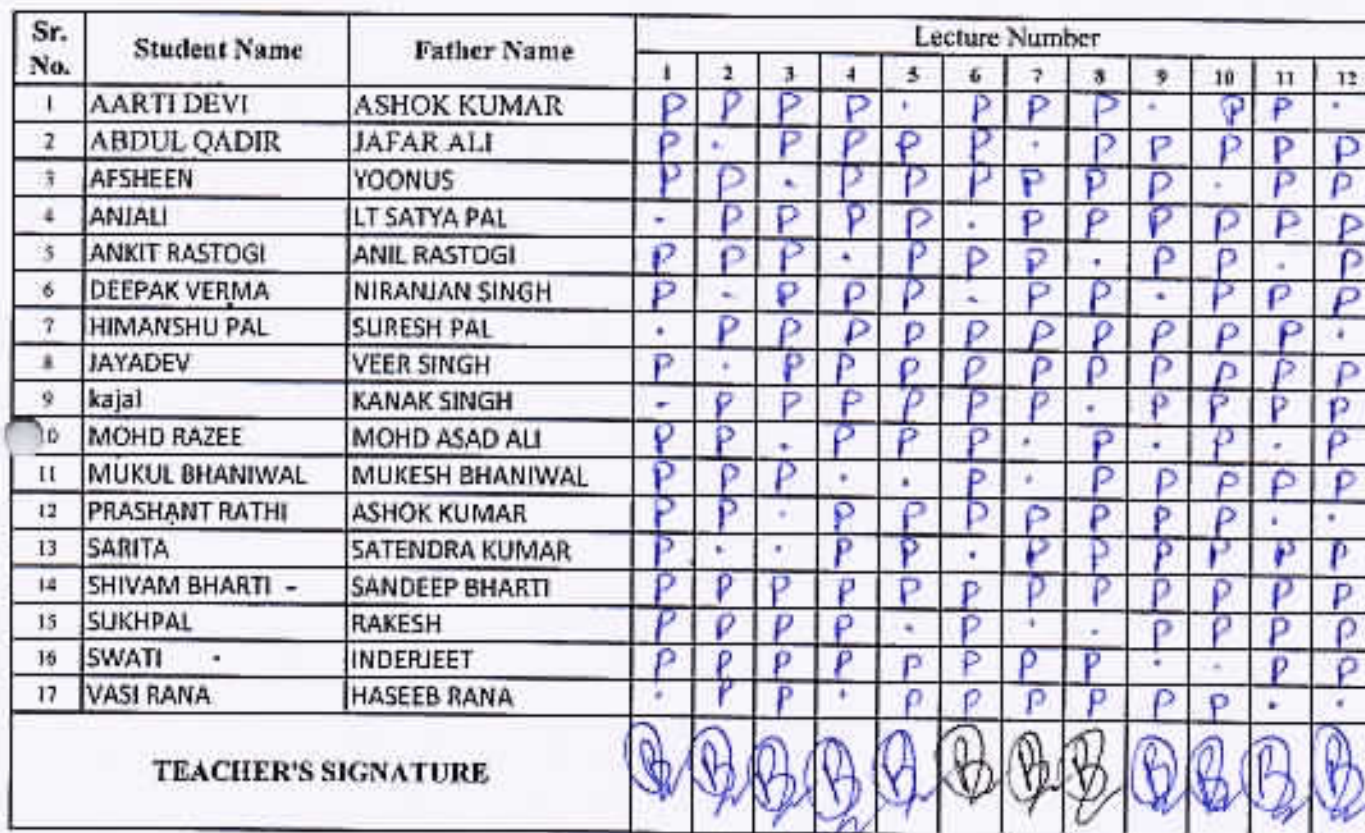 Sr. No. Student Name Father Name Lecture Number
1 2 3 4 5 6 7 8 9 10 11 12
1 AARTI DEVI ASHOK KUMAR P P P P . P P P . P P .
2 ABDUL QADIR JAFAR ALI P . P P P P . P P P P P
3 AFSHEEN YOONUS P P . P P P P P P . P P
4 ANJALI LT SATYA PAL - P P P P . P P P P P P
5 ANKIT RASTOGI ANIL RASTOGI P P P . P P P . P P . P
6 DEEPAK VERMA NIRANJAN SINGH P - P P P - P P . P P P
7 HIMANSHU PAL SURESH PAL . P P P P P P P P P P .
8 JAYADEV VEER SINGH P . P P P P P P P P P P
9 kajal KANAK SINGH - P P P P P P . P P P P
10 MOHD RAZEE MOHD ASAD ALI P P . P P P . P . P . P
11 MUKUL BHANIWAL MUKESH BHANIWAL P P P . . P . P P P P P
12 PRASHANT RATHI ASHOK KUMAR P P . P P P P P P P . .
13 SARITA SATENDRA KUMAR P . . P P . P P P P P P
14 SHIVAM BHARTI - SANDEEP BHARTI P P P P P P P P P P P P
15 SUKHPAL RAKESH P P P P . P . . P P P P
16 SWATI . INDERJEET P P P P P P P P . . P P
17 VASI RANA HASEEB RANA . P P . P P P P P P . .
TEACHER'S SIGNATURE